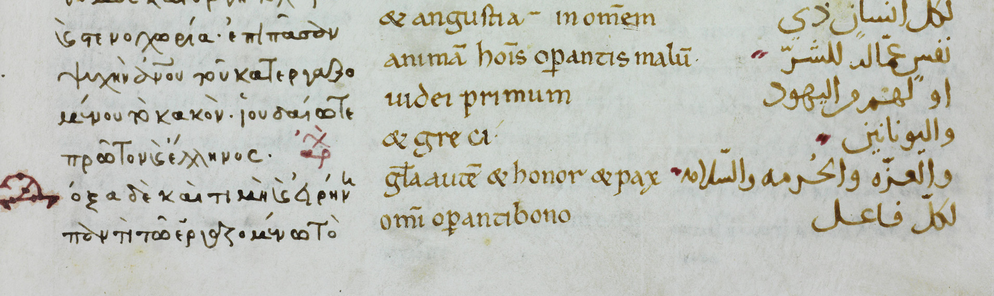 ϗ στενοχωρία· ἐπὶ πᾶσαν
ψυχὴν ἀνου τοῦ κατεργαζο
μένου τὸ κακὸν· ἰουδαίω τε
πρῶτον ϗ ἕλληνος·
όξα δὲ καὶ τιμὴ ϗ εἰρήνη
παντὶ τῶ ἐργαζομένω τὸ
& angustia in omēm
animā hoīs opantis malū·
iudei primum
& greci·
gła autē & honor & pax
omī opanti bono
لكل انسان ذي
نفس عمّاله للشرّ
اولهم واليهود
واليونانيين
والعزّه والحُرمه والسّلامه
لكلّ فاعل